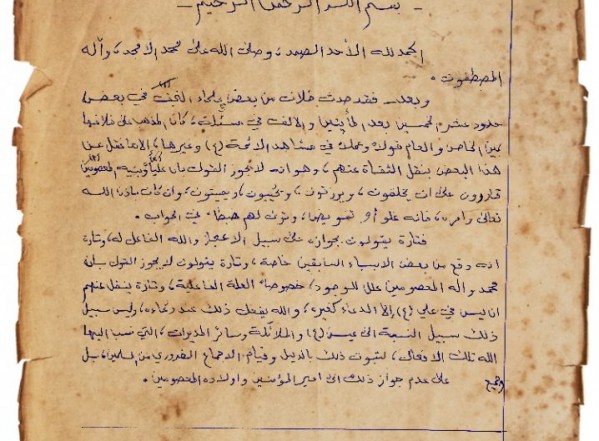 بسم الله الرحمن الرحيم
الحمد لله الأحد الصمد، وصلى الله على محمد الامجد، وآله
المصطفون.
وبعد.. فقد حدث خلاف من بعض في بعض
حدود عشرة الخمسين بعد المأتين والالف في مسئلة، كان المذهب على خلافها
الخاص والعام قولا وعملا في مشاهد الائمة (ع) وغيرها، نقل عن
هذا البعض بنقل الثقاة عنهم، وهو انه لا يجوز القول بان عليا وبنيه المعصومين
قادرون على ان يخلقون، ويرزقون، ويحيون، ويميتون، وان كان باذن الله
تعالى وامره، فانه غلو أو تفويض، وترى لهم في الجواب.
فتارة يقولون بجوازه على سبيل الاعجاز والله الفاعل له، وتارة
انه وقع من بعض الانبياء السابقين خاصة، وتارة يقولون لا يجوز القول بأن
محمد وآله المعصومين علل للوجود، خصوصا العلة الفاعلية، وتارة ينقل عنهم
ان ليس في علي (ع) إلا الدعاء كغيره، والله يفعل ذلك عند دعاءه، وليس سبيل
ذلك سبيل النسبة الى عيسى (ع) والملائكة وسائر المدبرات، التي نسب اليها
الله تلك الافعال، لثبوت ذلك بالدليل وقيام الاجماع الضروري من المسلمين، بل
وجميع على عدم جواز ذلك الى امير المؤمنين واولاده المعصومين.